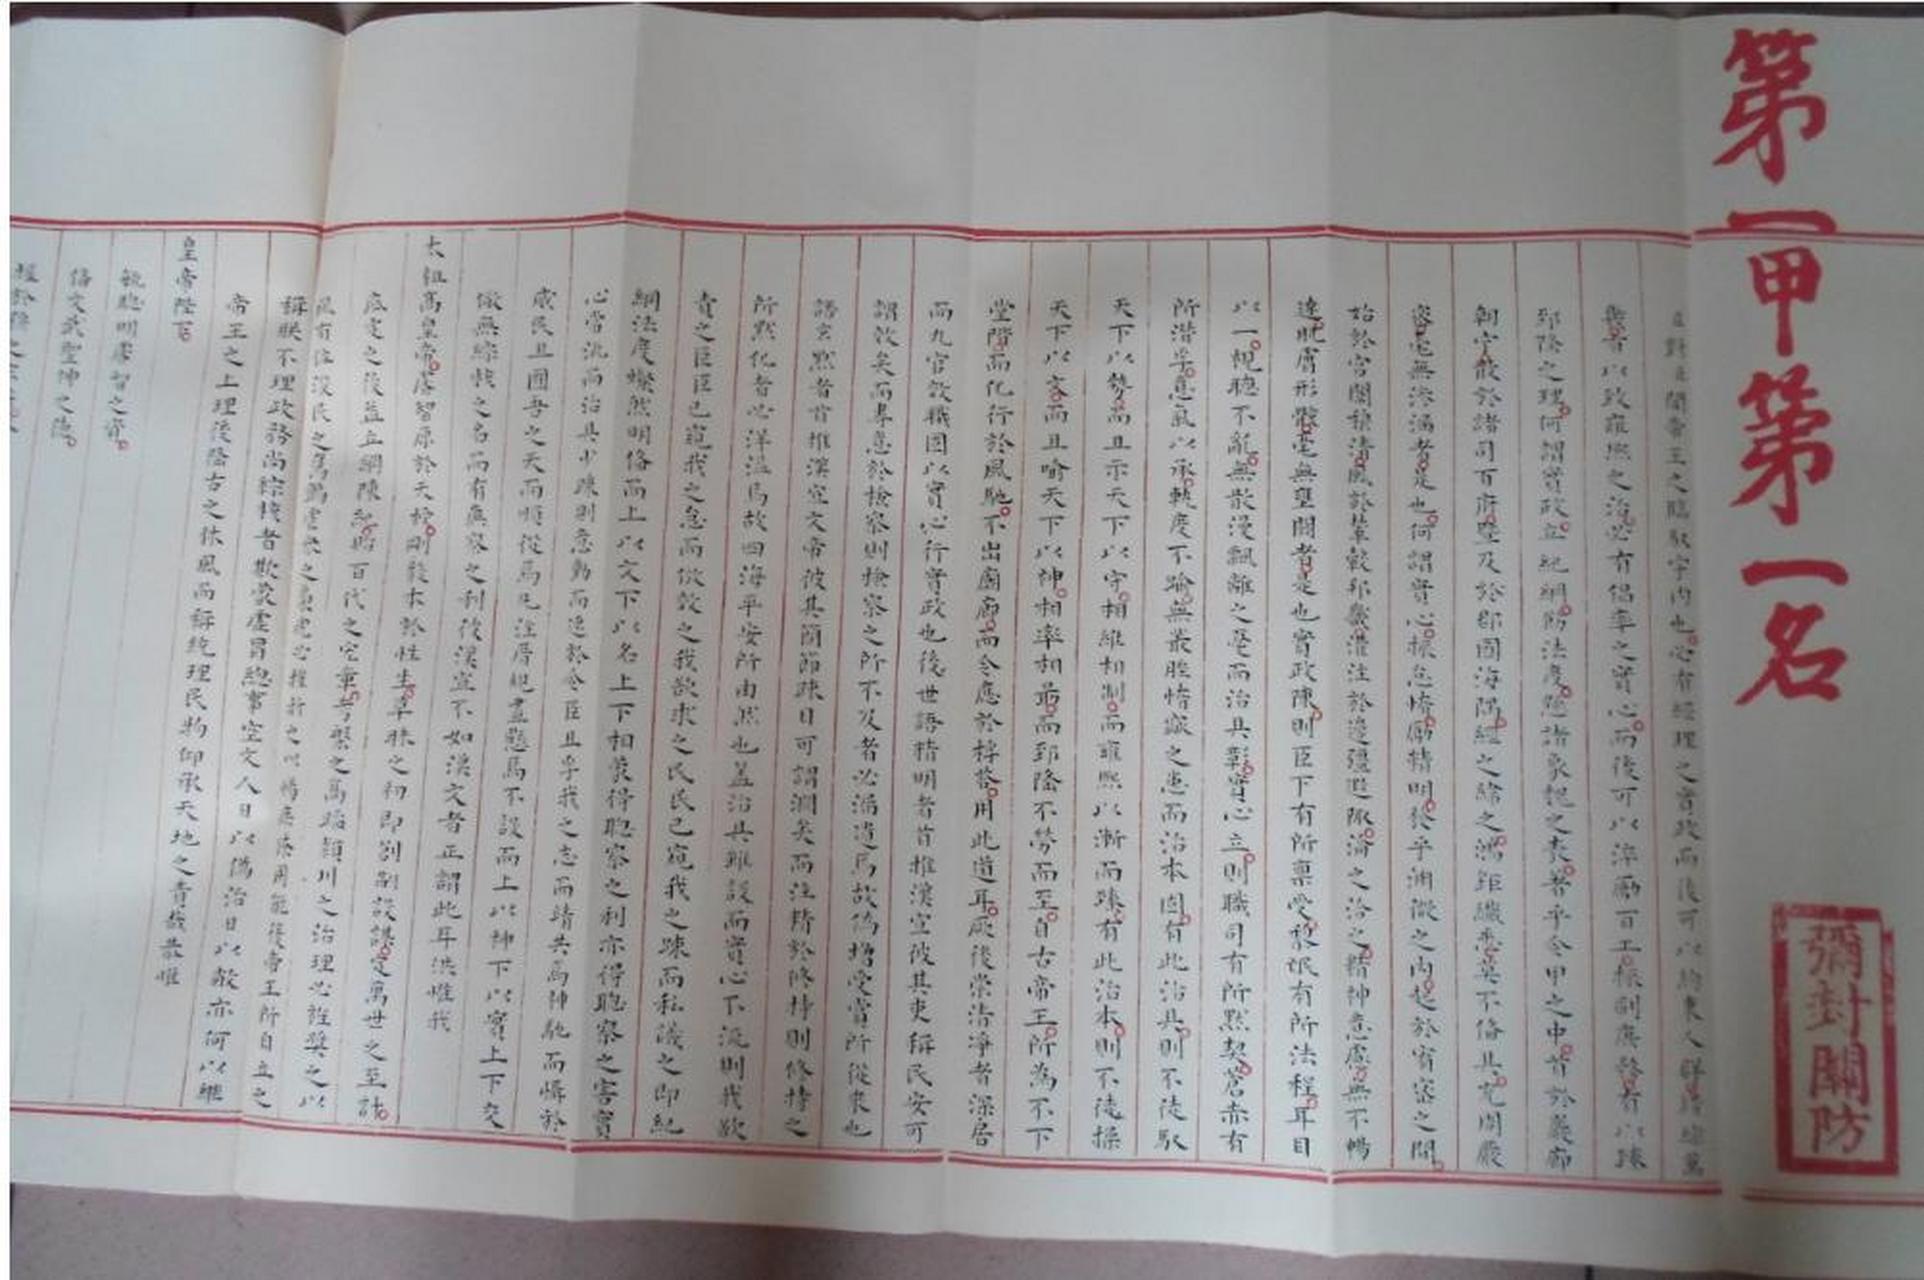 第一甲第一名
彌封關防
臣對臣聞帝王之臨馭宇內也必有經理之實政而後可以約束人群錯綜萬
有以致雍熙之治必有倡率之實心而後可以淬勵百工振刷庶務有以臻
郅隆之理何謂實政立紀綱飭法度懸諸象魏之表著乎令甲之中首於巖廊
朝宁散於諸司百府暨及於郡國海隅經之緯之鴻鉅纖悉莫不備具充周嚴
密毫無滲漏者是也何謂實心振怠惰勵精明發乎淵微之內起於宥密之間
始於宮闈穆清風於輦轂邦畿灌注於邊疆遐陬淪之洽之精神意慮無不暢
達肌膚形骸毫無壅閼者是也實政陳則臣下有所稟受黎氓有所法程耳目
以一視聽不亂無散漫飄離之憂而治具彰實心立則職司有所默契蒼赤有
所潛孚意氣以承軌度不踰無叢脞惰窳之患而治本固有此治具則不徒馭
天下以勢而且示天下以守相維相制而雍熙以漸而臻有此治本則不徒操
天下以文而且喻天下以神相率相勗而郅隆不勞而至自古帝王所為不下
堂階而化行於風馳不出廟廊而令應於桴答用此道耳厥後崇清淨者深居
而九官效職固以實心行實政也後世語精明者首推漢宣彼其吏稱民安可
謂效矣而專意於檢察則檢察之所不及者必漏遺焉故偽增受賞所從來也
語玄默者首推漢文帝彼其簡節疎目可謂淵矣而注精於修持則修持之
所默化者必洋溢焉故四海平安所由然也蓋治具雖設而實心不流則我欲
責之臣臣已窺我之怠而倣效之我欲求之民民已窺我之疎而私議之即紀
綱法度燦然明備而上以文下以名上下相蒙得聰察之利亦得聰察之害實
心常流而治具少疎則意動而速於令臣且孚我之志而靖共焉神馳而懾於
威民且囿吾之天而順從焉凡注厝規畫懸焉不設而上以神下以實上下交
儆無綜核之名而有廉察之利彼漢宣不如漢文者正謂此耳洪惟我
太祖高皇帝睿智原於天授剛毅本於性生草昧之初即創制設謀定萬世之至計
底定之後益立綱陳紀貽百代之宏章
稱朕不理政務尚綜核者欺蒙虛冒總事空文人日以偽治日以敝亦何以繼
帝王之上理後隆古之休風而稱統理民物仰承天地之責哉恭惟
皇帝陛下
敏聰明睿智之資
備文武聖神之德